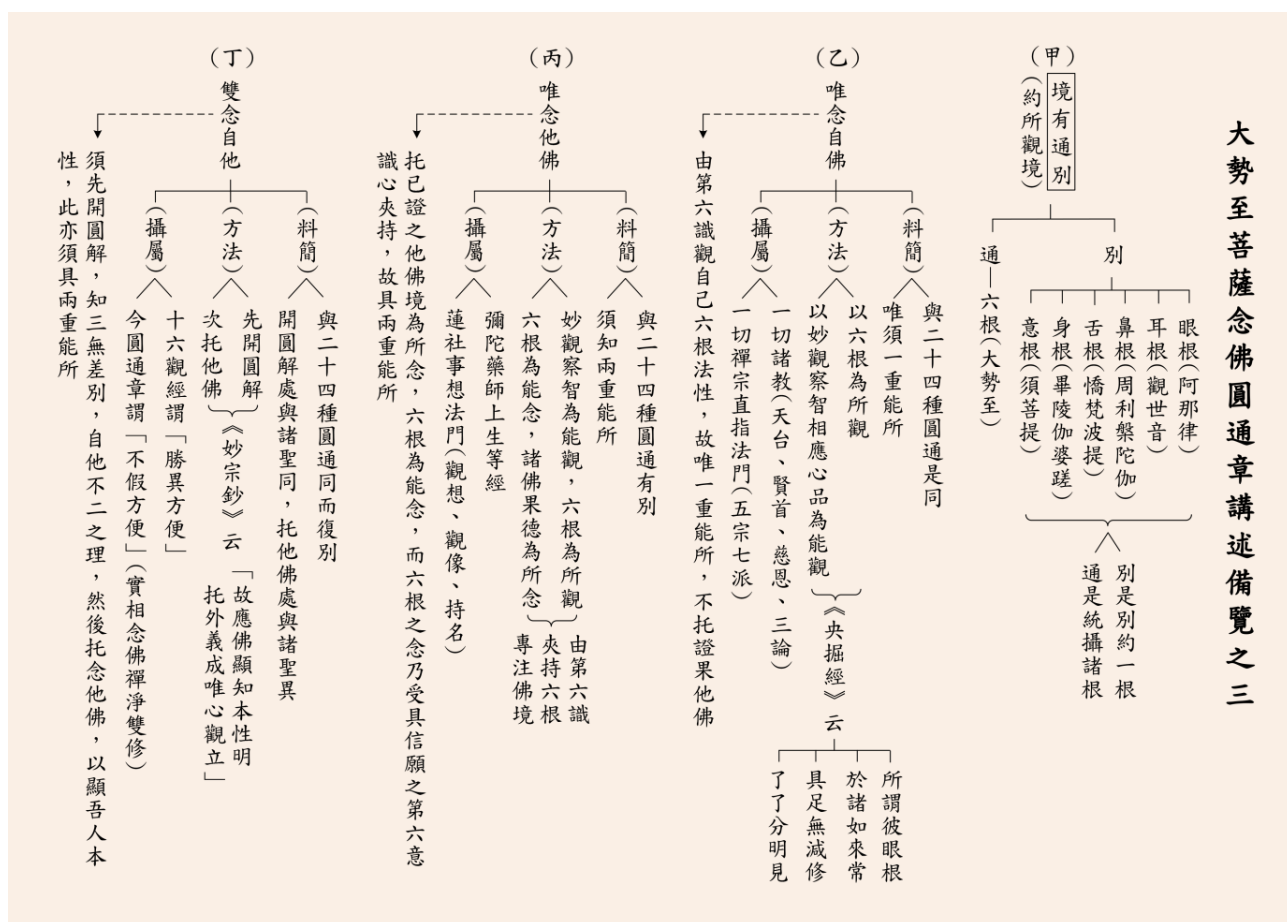 大勢至菩薩念佛圓通章講述備覽之三
（甲）
境有通別
（約所觀境）
別
眼根（阿那律）
耳根（觀世音）
鼻根（周利槃陀伽）
舌根（憍梵波提）
身根（畢陵伽婆蹉）
意根（須菩提）
別是別約一根
通是統攝諸根
通—六根（大勢至）
（乙）
唯念自佛
（料簡）
與二十四種圓通是同
唯須一重能所
（方法）
以六根為所觀
以妙觀察智相應心品為能觀
《央掘經》云
所謂彼眼根
於諸如來常
具足無減修
了了分明見
（攝屬）
一切諸教（天台、賢首、慈恩、三論）
一切禪宗直指法門（五宗七派）
由第六識觀自己六根法性，故唯一重能所，不托證果他佛
（丙）
唯念他佛
（料簡）
與二十四種圓通有別
須知兩重能所
（方法）
妙觀察智為能觀，六根為所觀
六根為能念，諸佛果德為所念
由第六識
夾持六根
專注佛境
（攝屬）
彌陀藥師上生等經
蓮社事想法門（觀想、觀像、持名）
托已證之他佛境為所念，六根為能念，而六根之念乃受具信願之第六意
識心夾持，故具兩重能所
（丁）
雙念自他
（料簡）
與二十四種圓通同而復別
開圓解處與諸聖同，托他佛處與諸聖異
（方法）
先開圓解
次托他佛
《妙宗鈔》云
「故應佛顯知本性明
托外義成唯心觀立」
（攝屬）
十六觀經謂「勝異方便」
今圓通章謂「不假方便」（實相念佛禪淨雙修）
須先開圓解，知三無差別，自他不二之理，然後托念他佛，以顯吾人本
性，此亦須具兩重能所